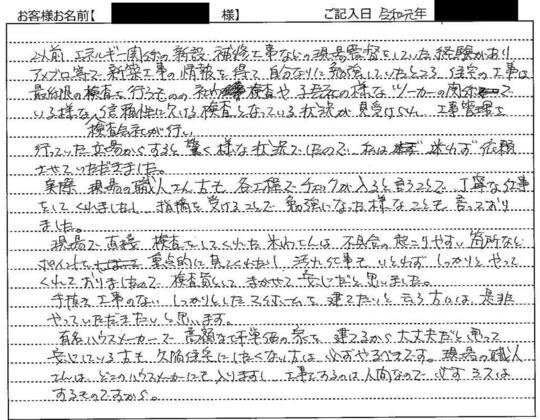 お客様お名前【 様】 ご記入日 令和元年
以前、エネルギー関係の新設・補修工事などの現場監督をしていた経験があり
アメブロ等で新築工事の情報を得て自分なりに勉強していたところ、住宅の工事は
最低限の検査を行うものの社内検査や子会社の様なツーカーの関係
検査会社が行い
いる様な信頼性に欠ける検査となっている状況が見受けられ、工事管理を
行っていた立場からすると驚く様な状況でしたので、私は迷わず依頼
させていただきました。
実際、現場の職人さん方も各工程でチェックが入ると言うことで、丁寧な仕事
をしてくれましたし、指摘を受けることで勉強になった様なことも言っており
ました。
現場で直接、検査をしてくれた さんは不具合の起こりやすい箇所など
ポイントを重点的に見てくれたし、汚れ仕事もいとわず、しっかりとやって
くれておりましたので検査員としてまかせて安心だと思いました。
手抜き工事のない、しっかりとしたマイホームを建てたいと言う方には、是非
やっていただきたいと思います。
有名ハウスメーカーで高額な坪単価の家を建てるから大丈夫だと思って
安心している方も欠陥住宅にしたくない方は必ずやるべきです。現場の職人
さんは、どこのハウスメーカーにも入りますし、工事をするのは人間なので必ずミスは
するものですから。